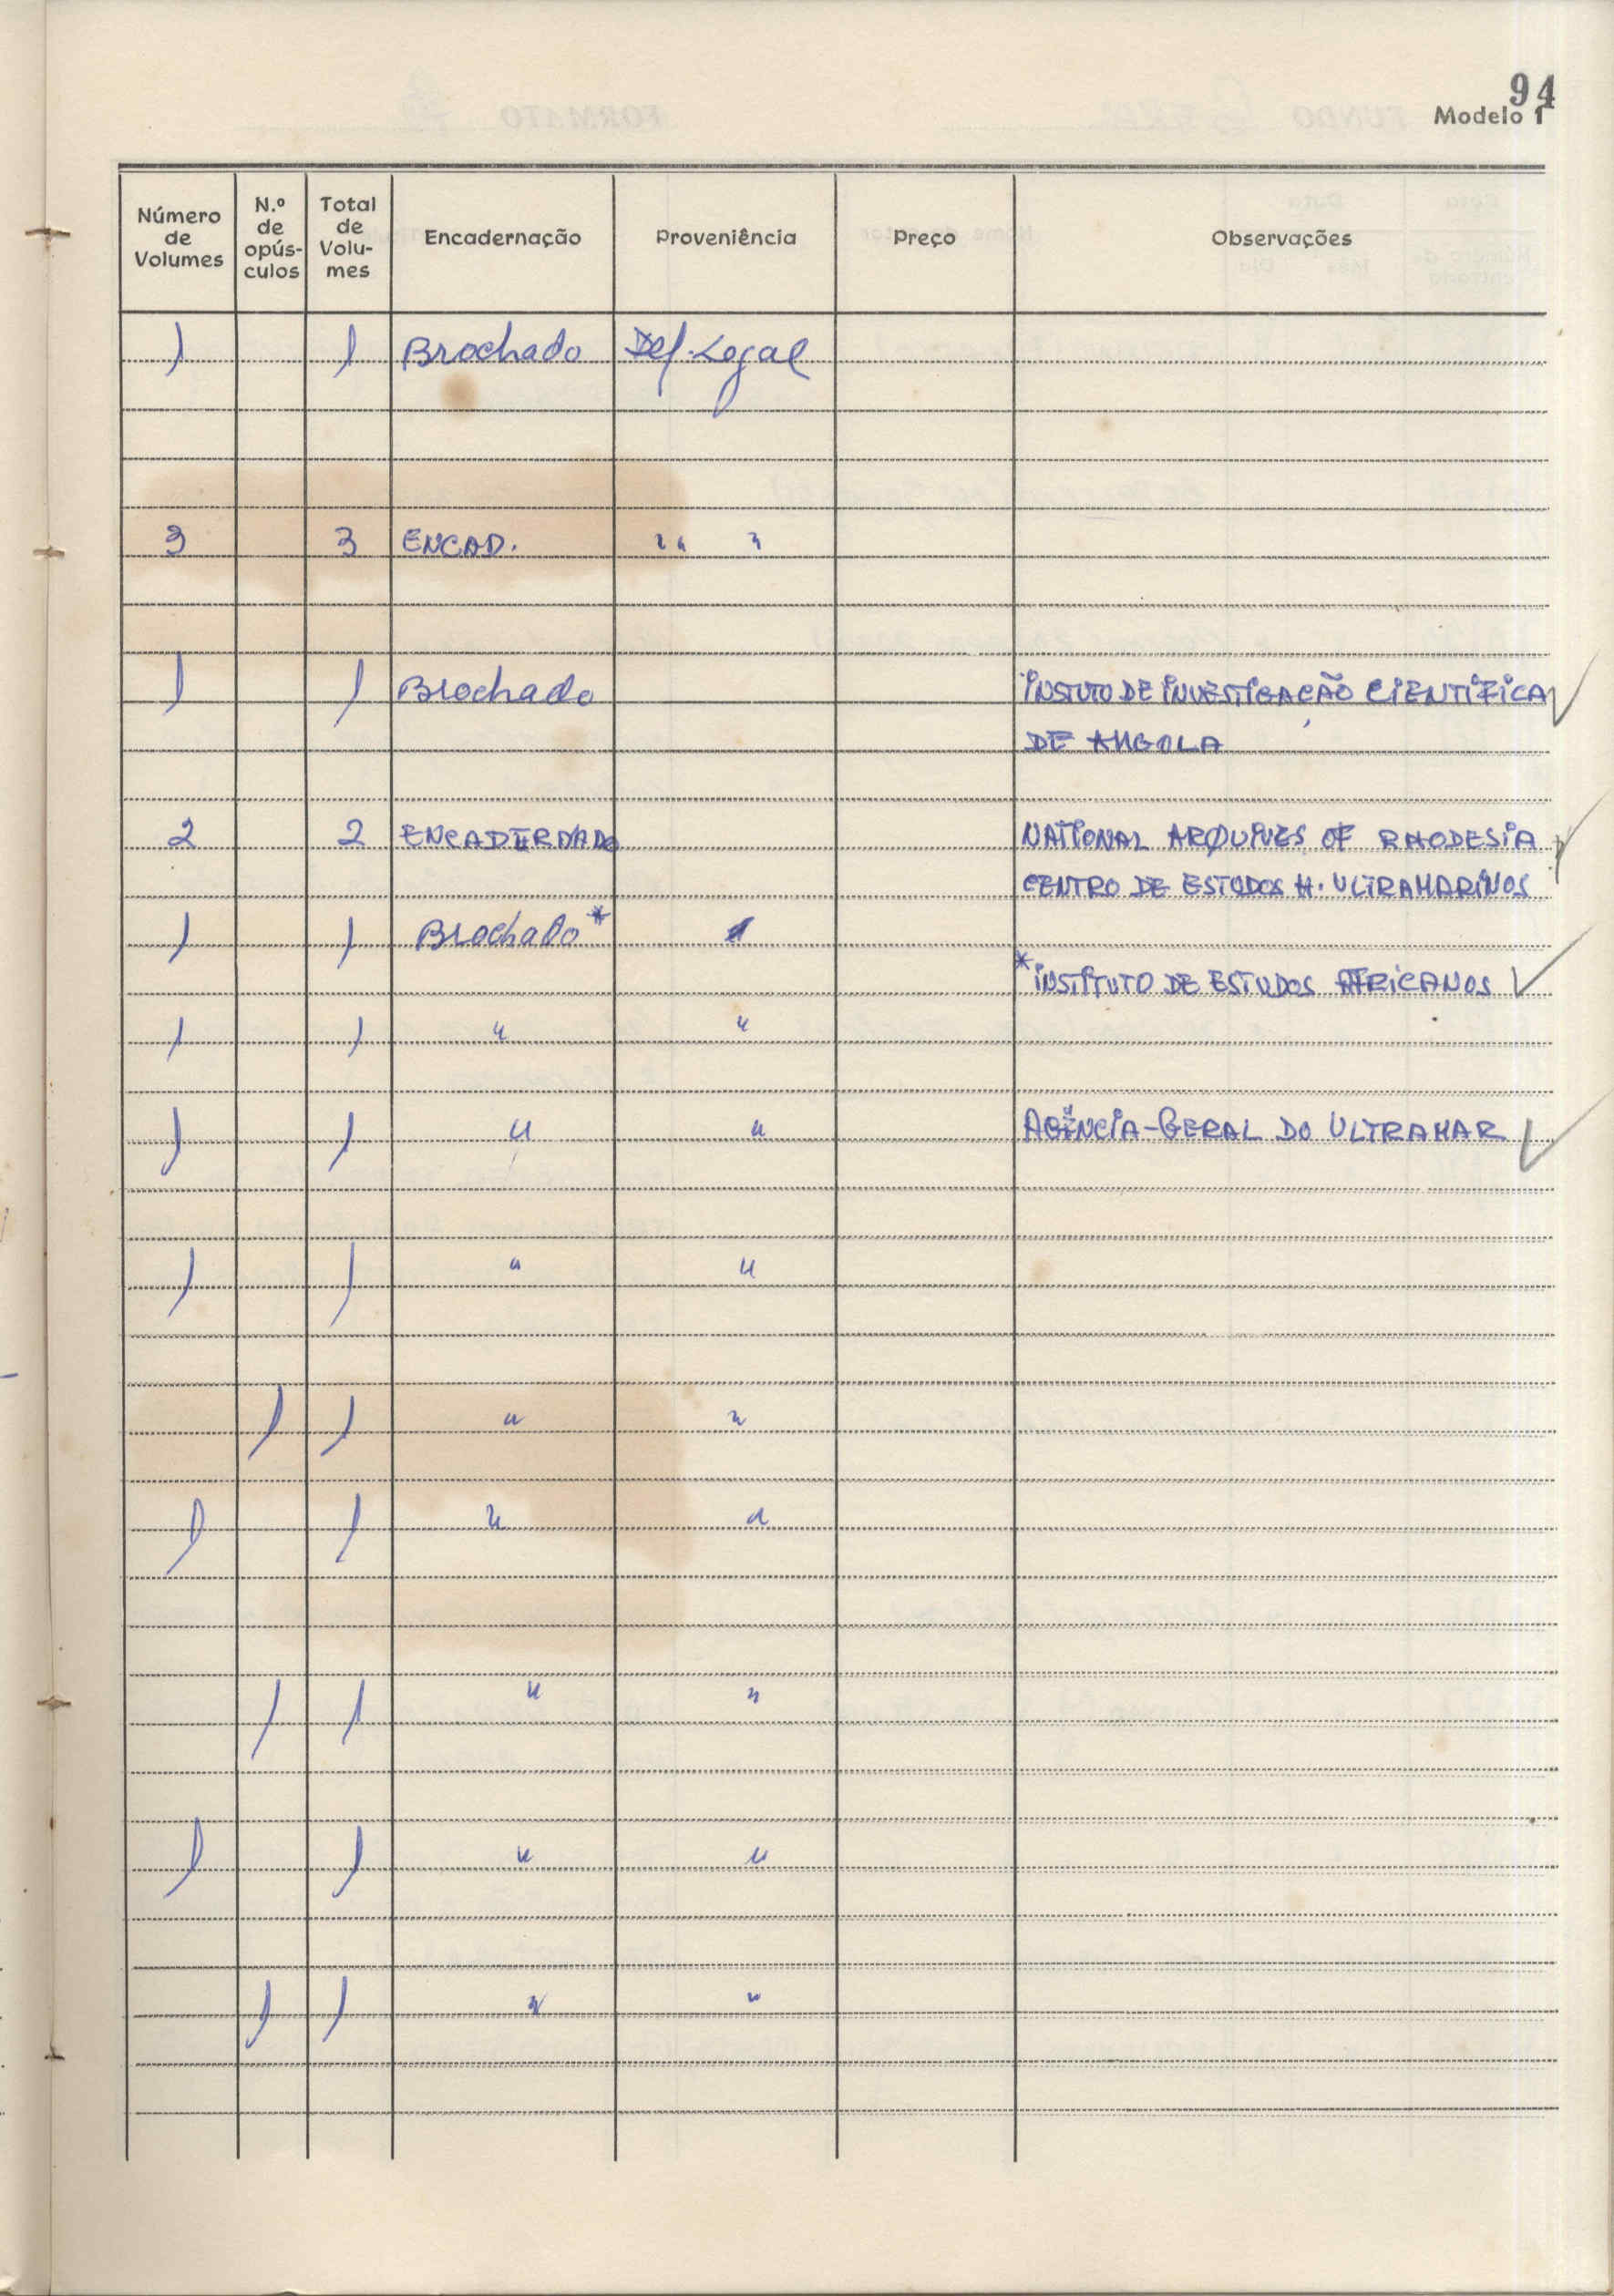 94
Modelo 1
Número de Volumes N.º de opús-culos Total de Volu-mes Encadernação Proveniência Preço Observações
1 1 Brochado Dep. Legal
3 3 ENCAD. " " "
1 1 Brochado INSTUTO DE INVESTIGAÇÃO CIENTÍFICA
DE ANGOLA
2 2 ENCADERNADO NATIONAL ARQUIVES OF RHODESIA
CENTRO DE ESTUDOS H. ULTRAMARINOS
1 1 Brochado*
*INSTITUTO DE ESTUDOS AFRICANOS
1 1 " "
1 1 " " AGÊNCIA-GERAL DO ULTRAMAR
1 1 " "
1 1 " "
1 1 " "
1 1 " "
1 1 " "
1 1 " "